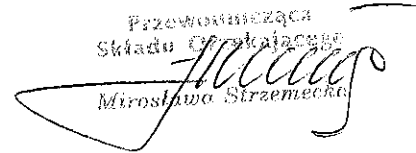 Przewodnicząca
Składu Orzekającego
Mirosława Strzemecka